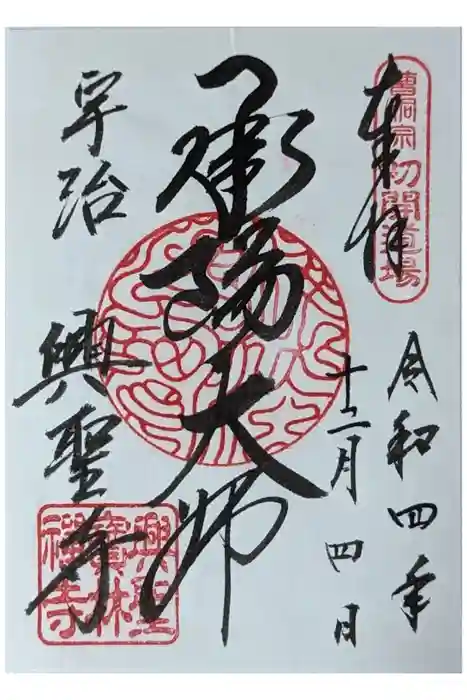 奉拝
曹洞宗初開道場
令和四年
十二月四日
承陽大師
宇治
興聖寺
興聖
寳林
禅寺